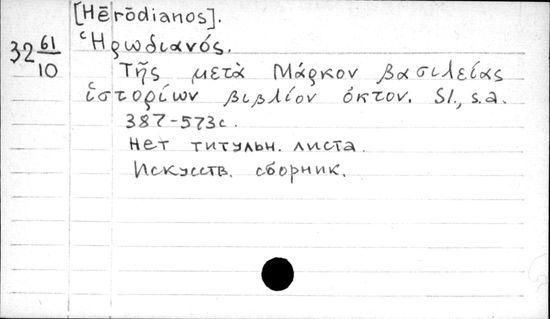 [Hērōdianos].
Ἡρωδιανός.
32 61/10
Τῆς μετὰ Μάρκον βασιλείας
ἱστορίων βιβλίον ὀκτον. Sl., s.a.
387-573с.
Нет титульн. листа.
Искусств. сборник.